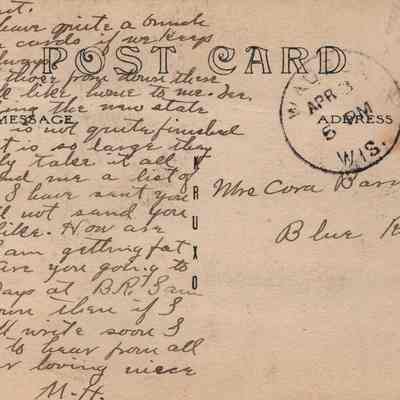 have quite a bunch
cards if we keep
always.
those from down there
like home to me. Dec.
ing the new state
is not quite finished
it is so large they
ly take it all
nd me a list of
I have sent you
ll not send you
like. How are
I am getting fat
are you going to
days at B.R. I am
own then if I
ll write soon I
to hear from all
r loving niece
M.H.
POST CARD
MESSAGE
ADDRESS
KRUXO
APR 3
5 PM
WIS.
Mrs Cora Barn
Blue R